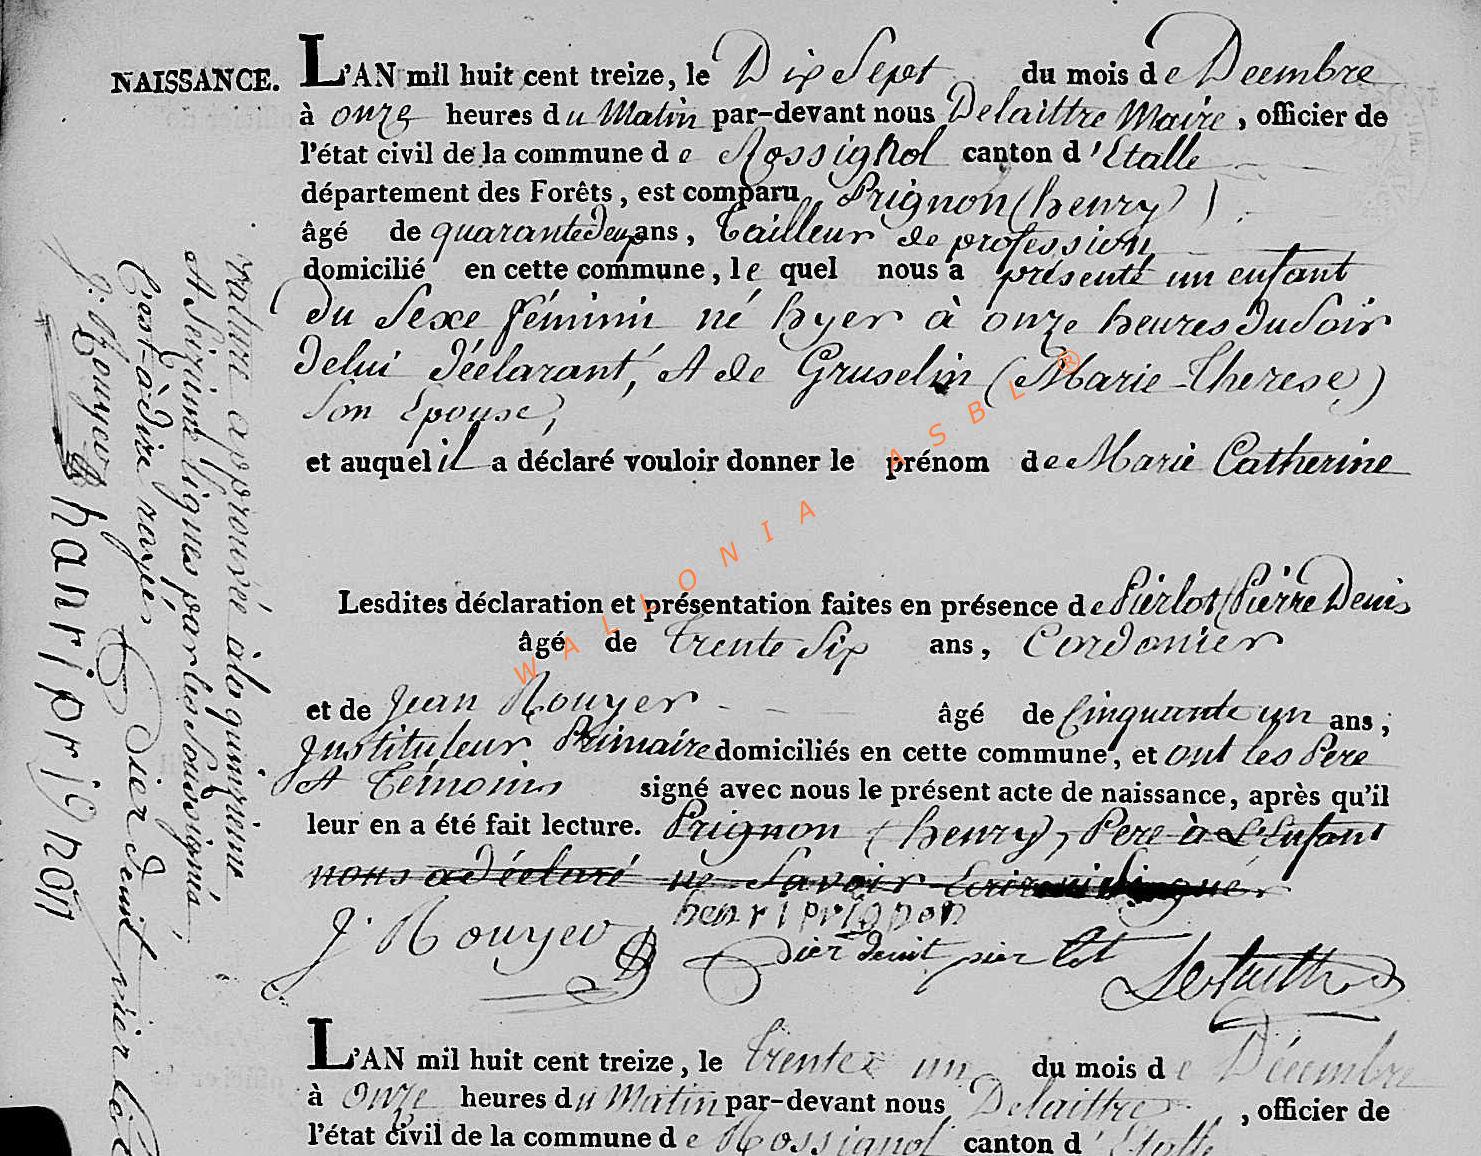 NAISSANCE. L'AN mil huit cent treize, le Dix Sept du mois de Decembre
à onze heures du Matin par-devant nous Delaittre Maire, officier de
l'état civil de la commune de Rossignol canton d'Etalle
département des Forêts, est comparu Prignon (henry)
âgé de quarante deux ans, Tailleur de profession
domicilié en cette commune, le quel nous a présenté un enfant
du Sexe féminin né hyer à onze heures du Soir
de lui déclarant, et de Gruselin (Marie-Therese)
Son Epouse,
et auquel il a déclaré vouloir donner le prénom de Marie Catherine
Lesdites déclaration et présentation faites en présence de Pierlot (Pierre Denis
âgé de trente Six ans, Cordonier
et de Jean Rouyer âgé de Cinquante un ans,
Instituteur Primaire domiciliés en cette commune, et ont les Pere
et Témoins signé avec nous le présent acte de naissance, après qu'il
leur en a été fait lecture. Prignon (henry), Pere à L'Enfant
nous a déclaré ne Savoir Ecrire ni Signer
henri prignon
J. Rouyer dier denit pier lot Delaittre
rature approuvée à la quinzieme
et Seizieme lignes par les Soussignés
C'est-à-dire rayés,
dier denit pier lot
J. Rouyer
hanri prignon
WALLONIA ASBL ®
L'AN mil huit cent treize, le trente un du mois de Décembre
à onze heures du Matin par-devant nous Delaittre, officier de
l'état civil de la commune de Rossignol canton d'Etalle